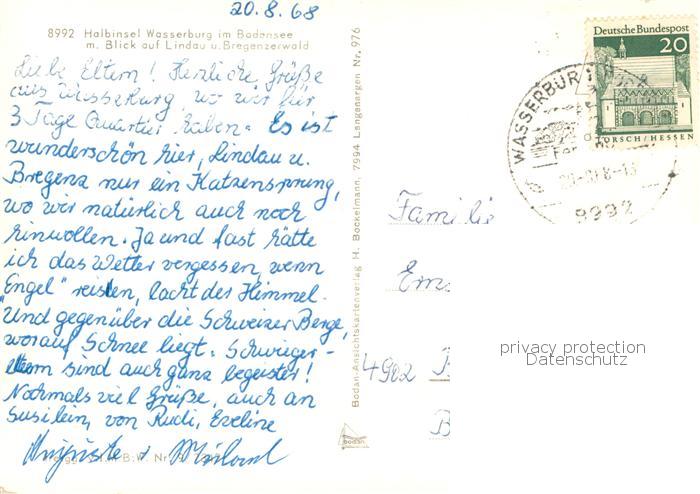 20.8.68
8992 Halbinsel Wasserburg im Bodensee
m. Blick auf Lindau u. Bregenzerwald
Liebe Eltern! Herzliche Grüße
aus Wasserburg, wo wir für
3 Tage Quartier haben. Es ist
wunderschön hier, Lindau u.
Bregenz nur ein Katzensprung,
wo wir natürlich auch noch
hinwollen. Ja und fast hätte
ich das Wetter vergessen, wenn
"Engel" reisen, lacht der Himmel.
Und gegenüber die Schweizer Berge,
worauf Schnee liegt. Schwieger-
eltern sind auch ganz begeistert!
Nochmals viel Grüße, auch an
Susilein, von Rudi, Eveline
Bodan-Ansichtskartenverlag H. Bockelmann, 7994 Langenargen Nr. 976
bodan
Deutsche Bundespost
20
LORSCH/HESSEN
WASSERBURG
8992
Familie
4902
privacy protection
Datenschutz